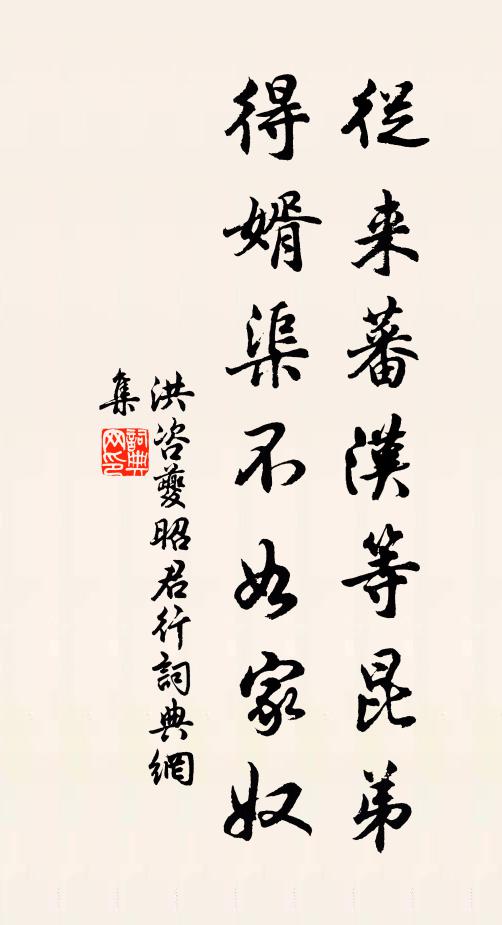 從来蕃漢等昆弟
得婿渠不如家奴
洪咨夔昭君行詞典網
集
詞典網印